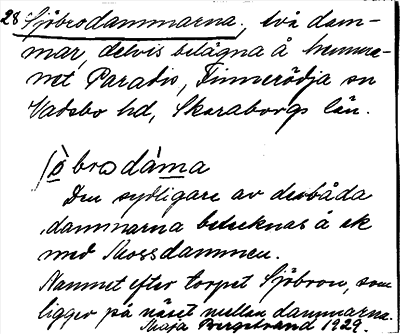 28 Sjöbrodammarna, två dam-
mar, delvis belägna å hemma-
net Paradis, Finnerödja sn
Vadsbo hd, Skaraborgs län.
ʃö̀broda̱ma
Den sydligare av desbåda
dammarna betecknas å ek
med Mossdammen.
Namnet efter torpet Sjöbron, som
ligger på näset mellan dammarna.
Maja Bergstrand 1929.